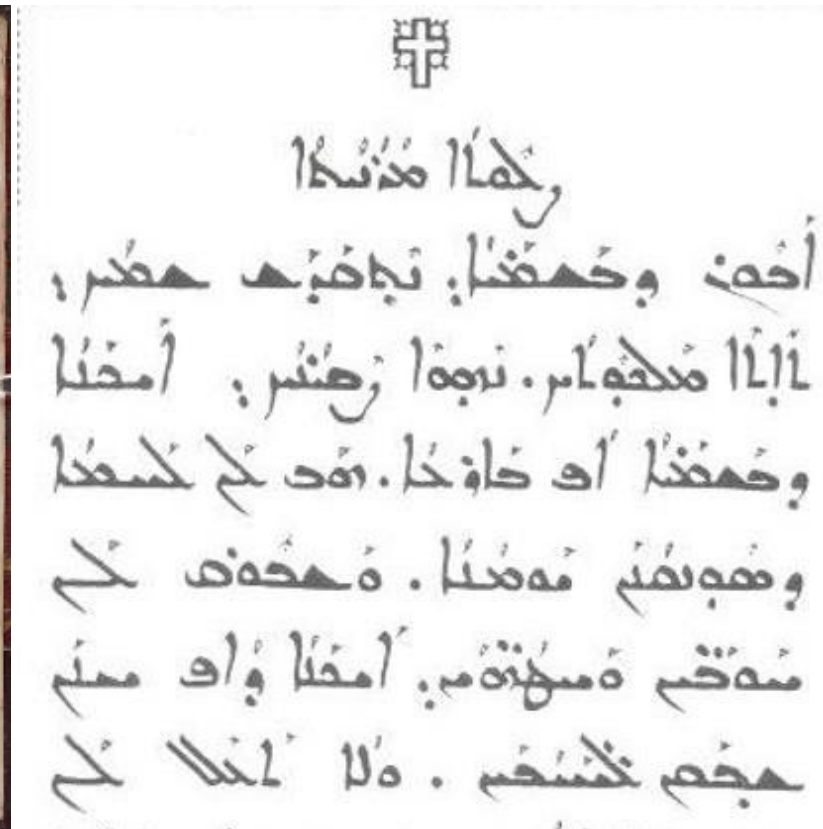 ܨܠܽܘܬܳܐ ܡܳܪܳܢܳܝܬܳܐ
ܐܰܒܽܘܢ ܕܒܰܫܡܰܝܳܐ. ܢܶܬܩܰܕܰܫ ܫܡܳܟ.
ܬܺܐܬܶܐ ܡܰܠܟܽܘܬܳܟ. ܢܶܗܘܶܐ ܨܶܒܝܳܢܳܟ. ܐܰܝܟܰܢܳܐ
ܕܒܰܫܡܰܝܳܐ ܐܳܦ ܒܰܐܪܥܳܐ. ܗܰܒ ܠܰܢ ܠܰܚܡܳܐ
ܕܣܽܘܢܩܳܢܰܢ ܝܰܘܡܳܢܳܐ. ܘܰܫܒܽܘܩ ܠܰܢ
ܚܰܘܒܰܝ̈ܢ ܘܰܚܛܳܗܰܝ̈ܢ. ܐܰܝܟܰܢܳܐ ܕܳܐܦ ܚܢܰܢ
ܫܒܰܩܢ ܠܚܰܝܳܒܰܝ̈ܢ. ܘܠܳܐ ܬܰܥܶܠ ܠܰܢ